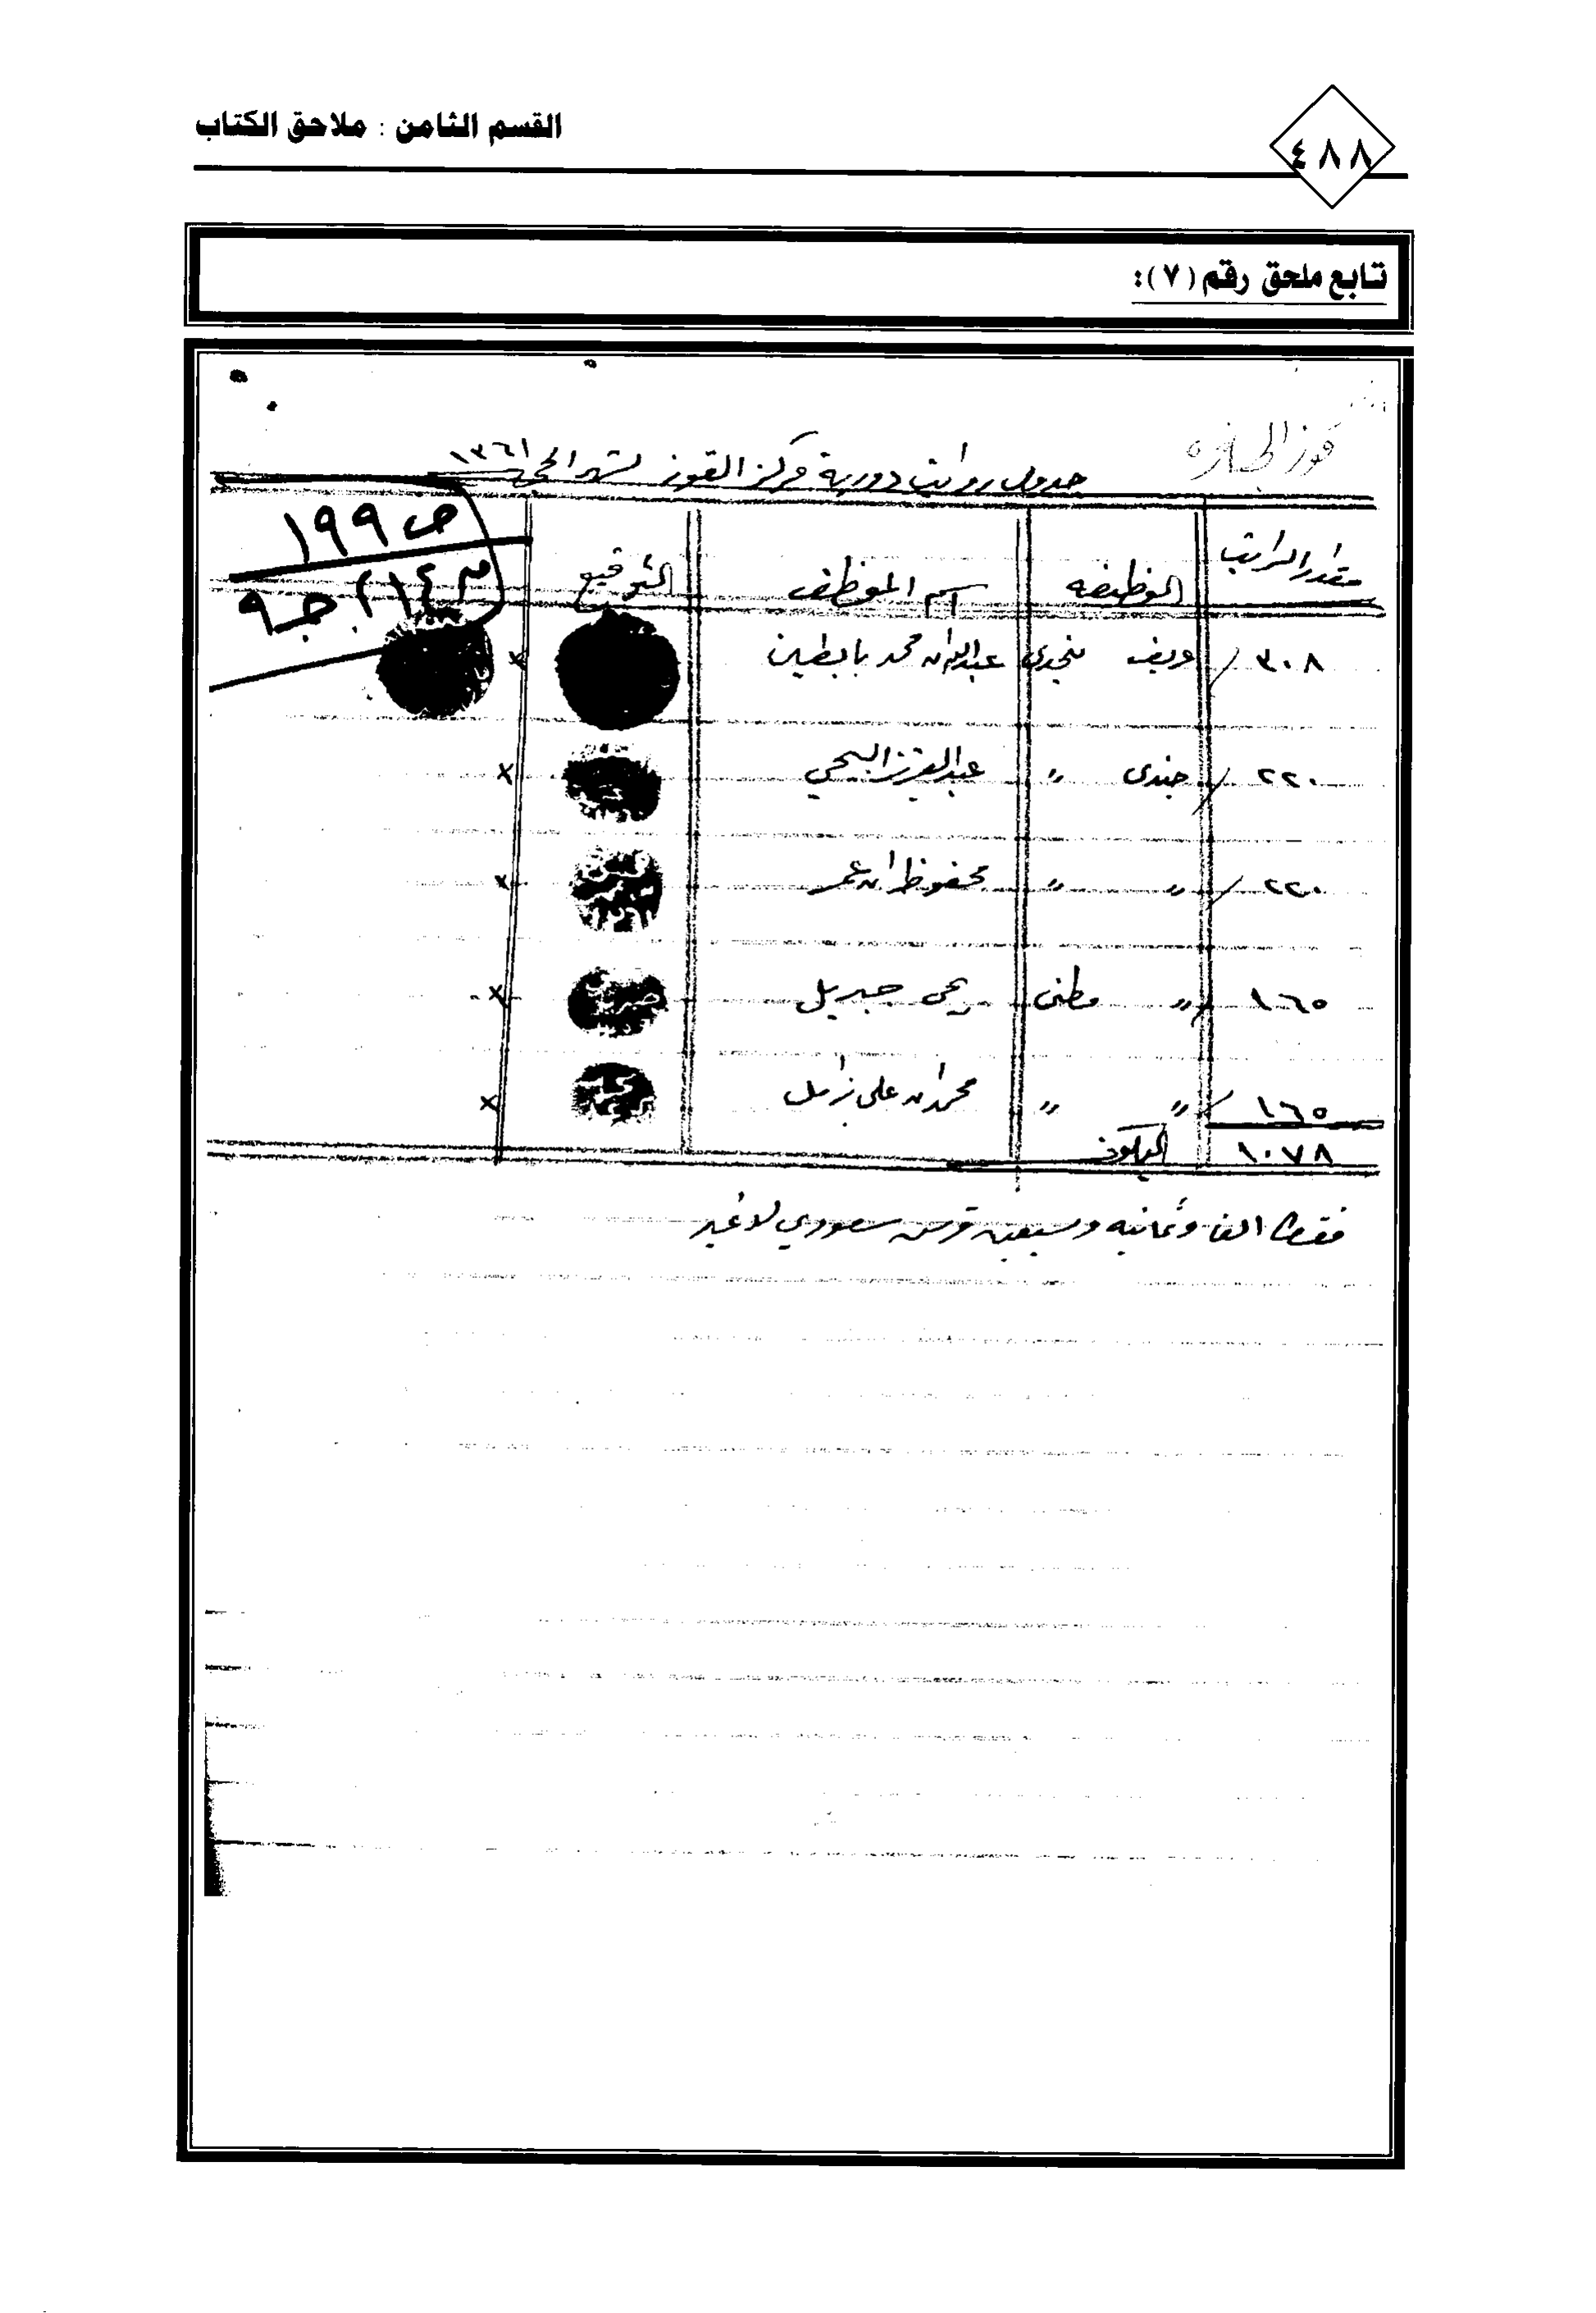 القسم الثامن : ملاحق الكتاب
٤٨٨
تابع ملحق رقم (٧):
جدول رواتب دورية مركز القوز لشهر الحجه ١٣٦١
ص ١٩٩
٢١٤ جـ ٩
مقدار الراتب الوظيفه اسم الموظف التوقيع
٣٠٨ عريف نجدي عبدالله ابن محمد بابطين ×
٢٢٠ جندي " عبدالعزيز اليحي ×
٢٢٠ " " محفوظ ابن عمر ×
١٦٥ " وطني يحي جبريل ×
١٦٥ " " محمد ابن علي زامل ×
١٠٧٨ اليكون
فقط الف وثمانيه وسبعين قرش سعودي لاغير